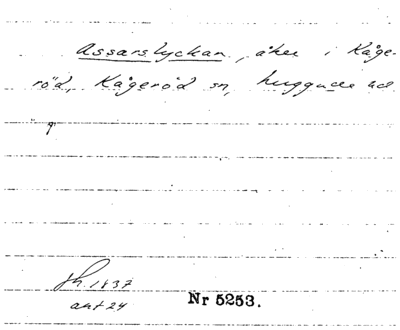 Assarslyckan, åker i Kåge-
röd, Kågeröd sn, Luggude hd
9
sh. 1837
akt 24
Nr 5253.